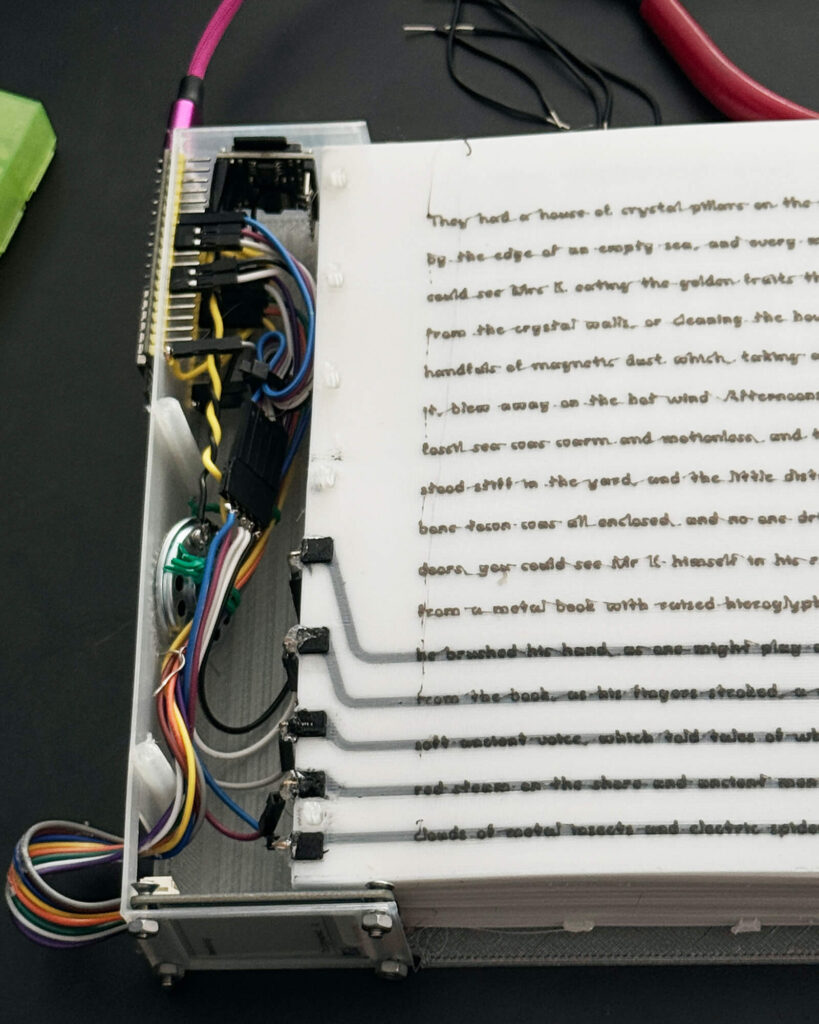 They had a house of crystal pillars on the
by the edge of an empty sea, and every
could see Mrs K. eating the golden fruits
from the crystal walls, or cleaning the
handfuls of magnetic dust which, taking
it, blew away on the hot wind Afternoons
fossil sea was warm and motionless, and
stood stiff in the yard, and the little
bone town was all enclosed, and no one
doors, you could see Mr K. himself in his
from a metal book with raised
he brushed his hand, as one might play
from the book, as his fingers stroked, a
soft ancient voice, which told tales of
red steam on the shore and ancient
clouds of metal insects and electric